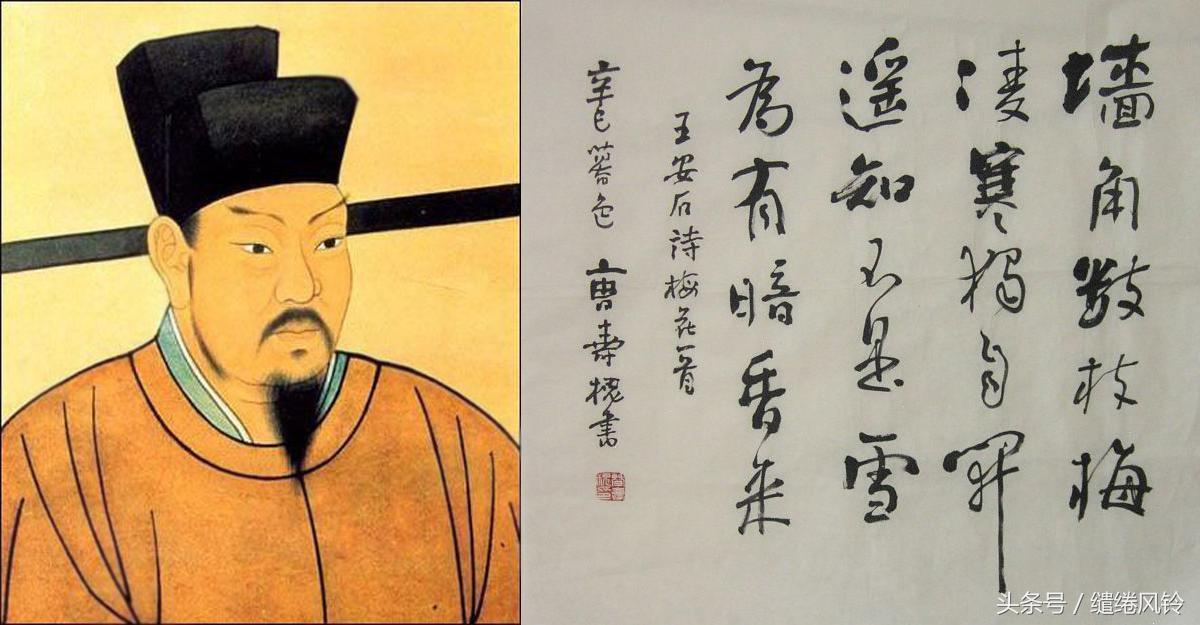 墙角数枝梅
凌寒獨自開
遥知不是雪
為有暗香来
王安石詩梅花一首
辛巳 曹壽槐書
头条号 / 缱绻风铃